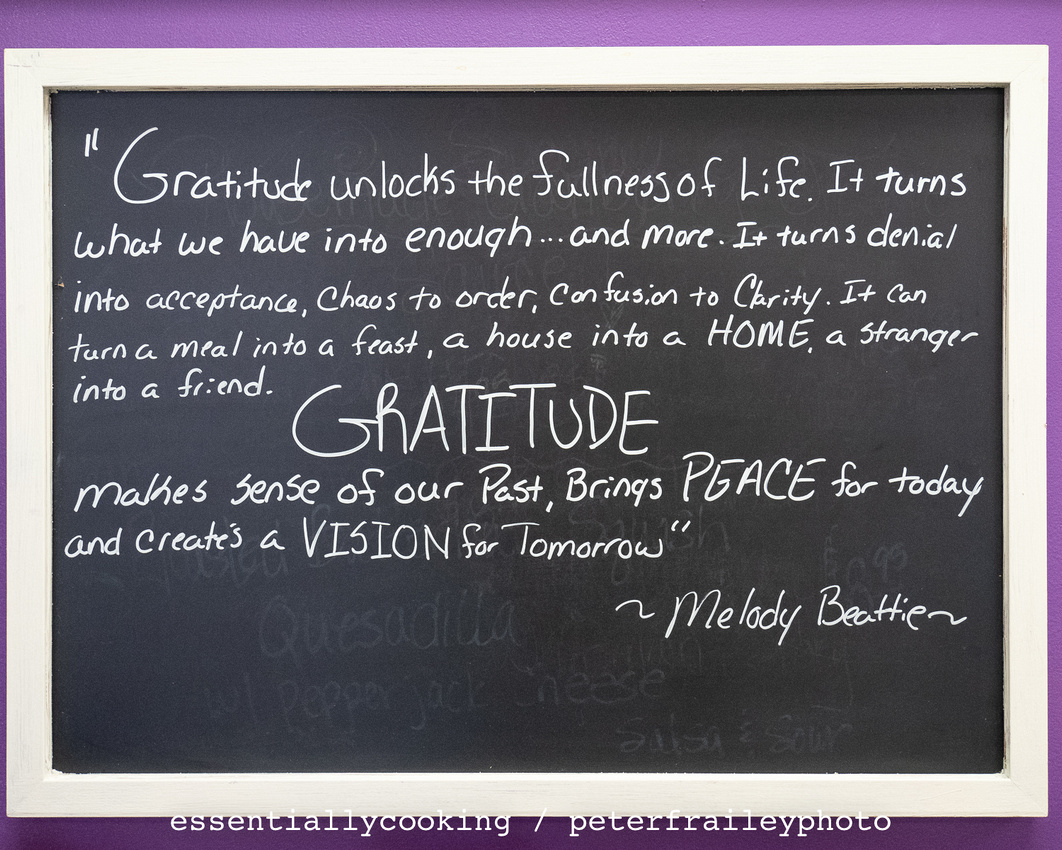 "Gratitude unlocks the fullness of Life. It turns
what we have into enough...and more. It turns denial
into acceptance, Chaos to order, Confusion to Clarity. It can
turn a meal into a feast, a house into a HOME, a stranger
into a friend.
GRATITUDE
makes sense of our Past, Brings PEACE for today
and create's a VISION for Tomorrow"
~ Melody Beattie ~
Quesadilla
w/ pepper jack cheese
Salsa & Sour
essentiallycooking / peterfraileyphoto